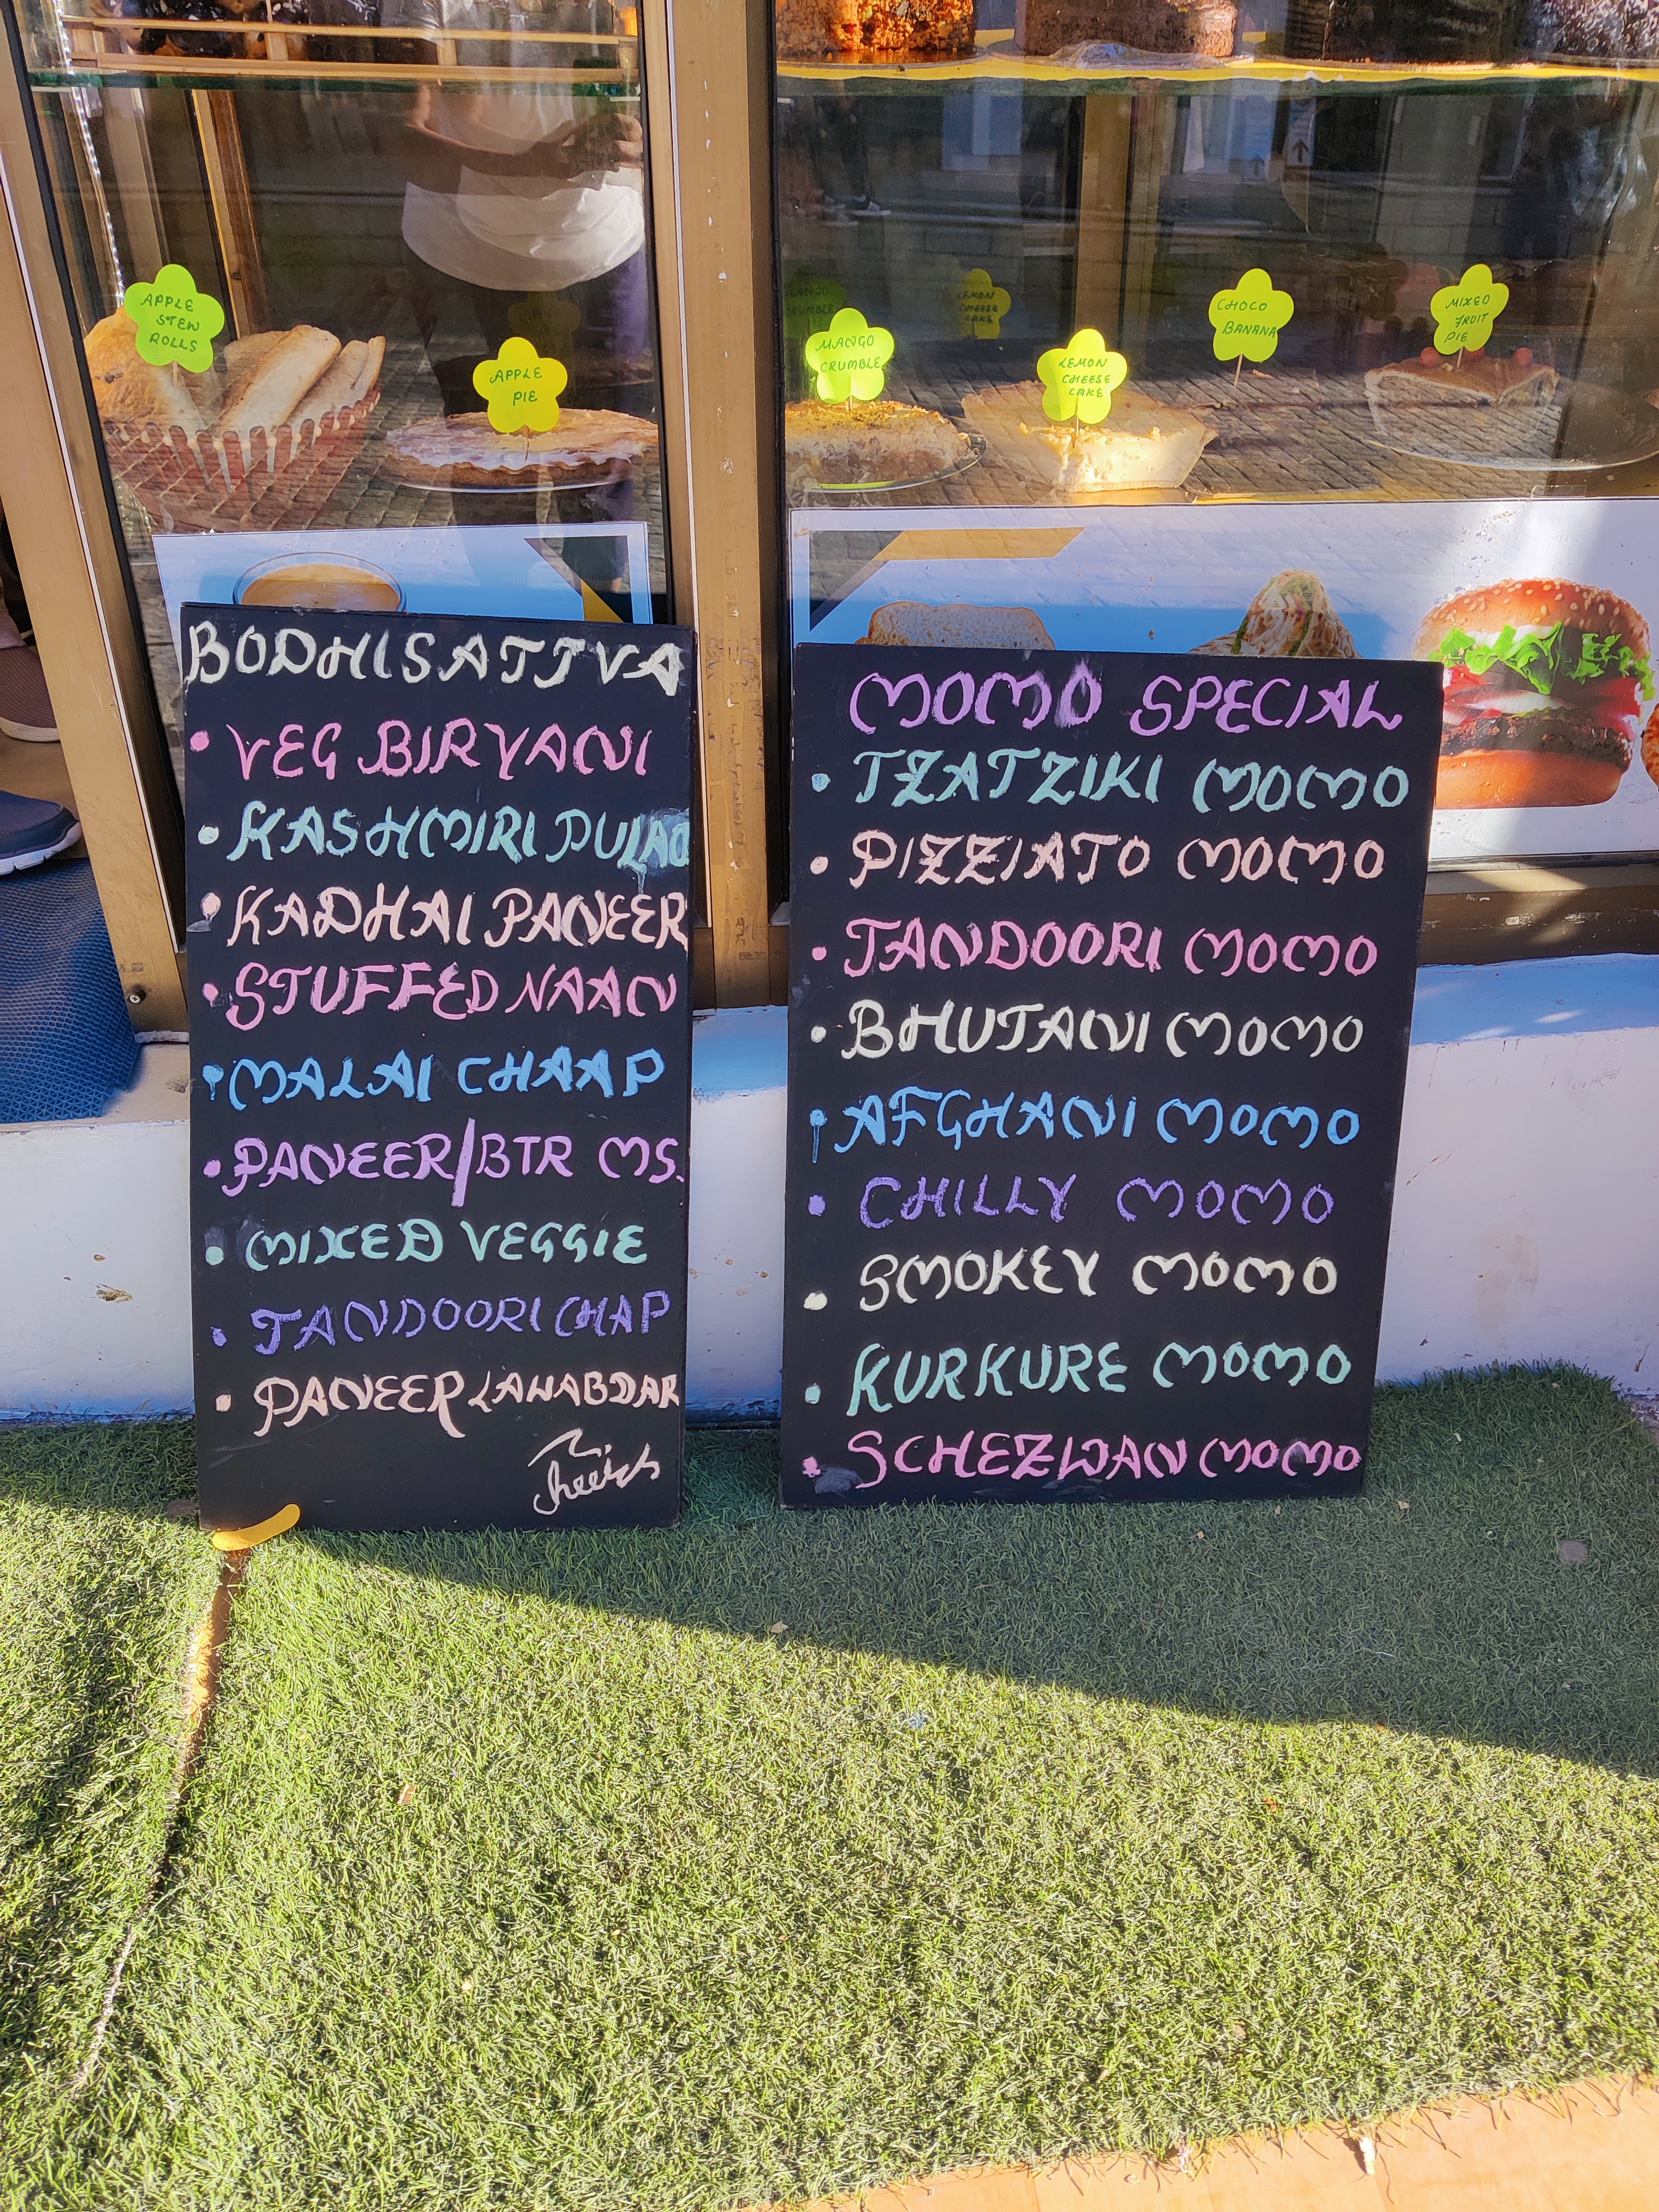 APPLE
STEW
ROLLS
APPLE
PIE
MANGO
CRUMBLE
LEMON
CHEESE
CAKE
LEMON
CHEESE
CAKE
CHOCO
BANANA
MIXED
FRUIT
PIE
BODHISATTVA
• VEG BIRYANI
• KASHMIRI PULAO
• KADHAI PANEER
• STUFFED NAAN
• MALAI CHAAP
• PANEER/BTR MS.
• MIXED VEGGIE
• TANDOORI CHAP
• PANEER LAWABDAR
MOMO SPECIAL
• TZATZIKI MOMO
• PIZZIATO MOMO
• TANDOORI MOMO
• BHUTANI MOMO
• AFGHANI MOMO
• CHILLY MOMO
• SMOKEY MOMO
• KURKURE MOMO
• SCHEZWAN MOMO